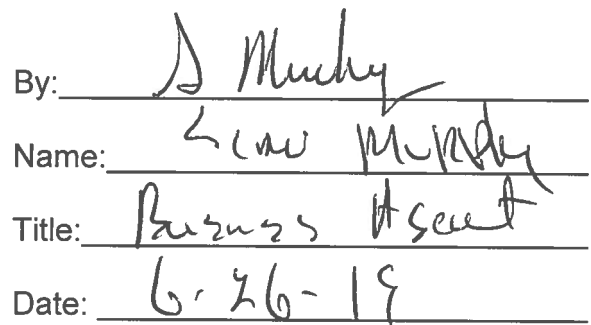 By: S Murphy
Name: Sean Murphy
Title: Business Agent
Date: 6-26-19